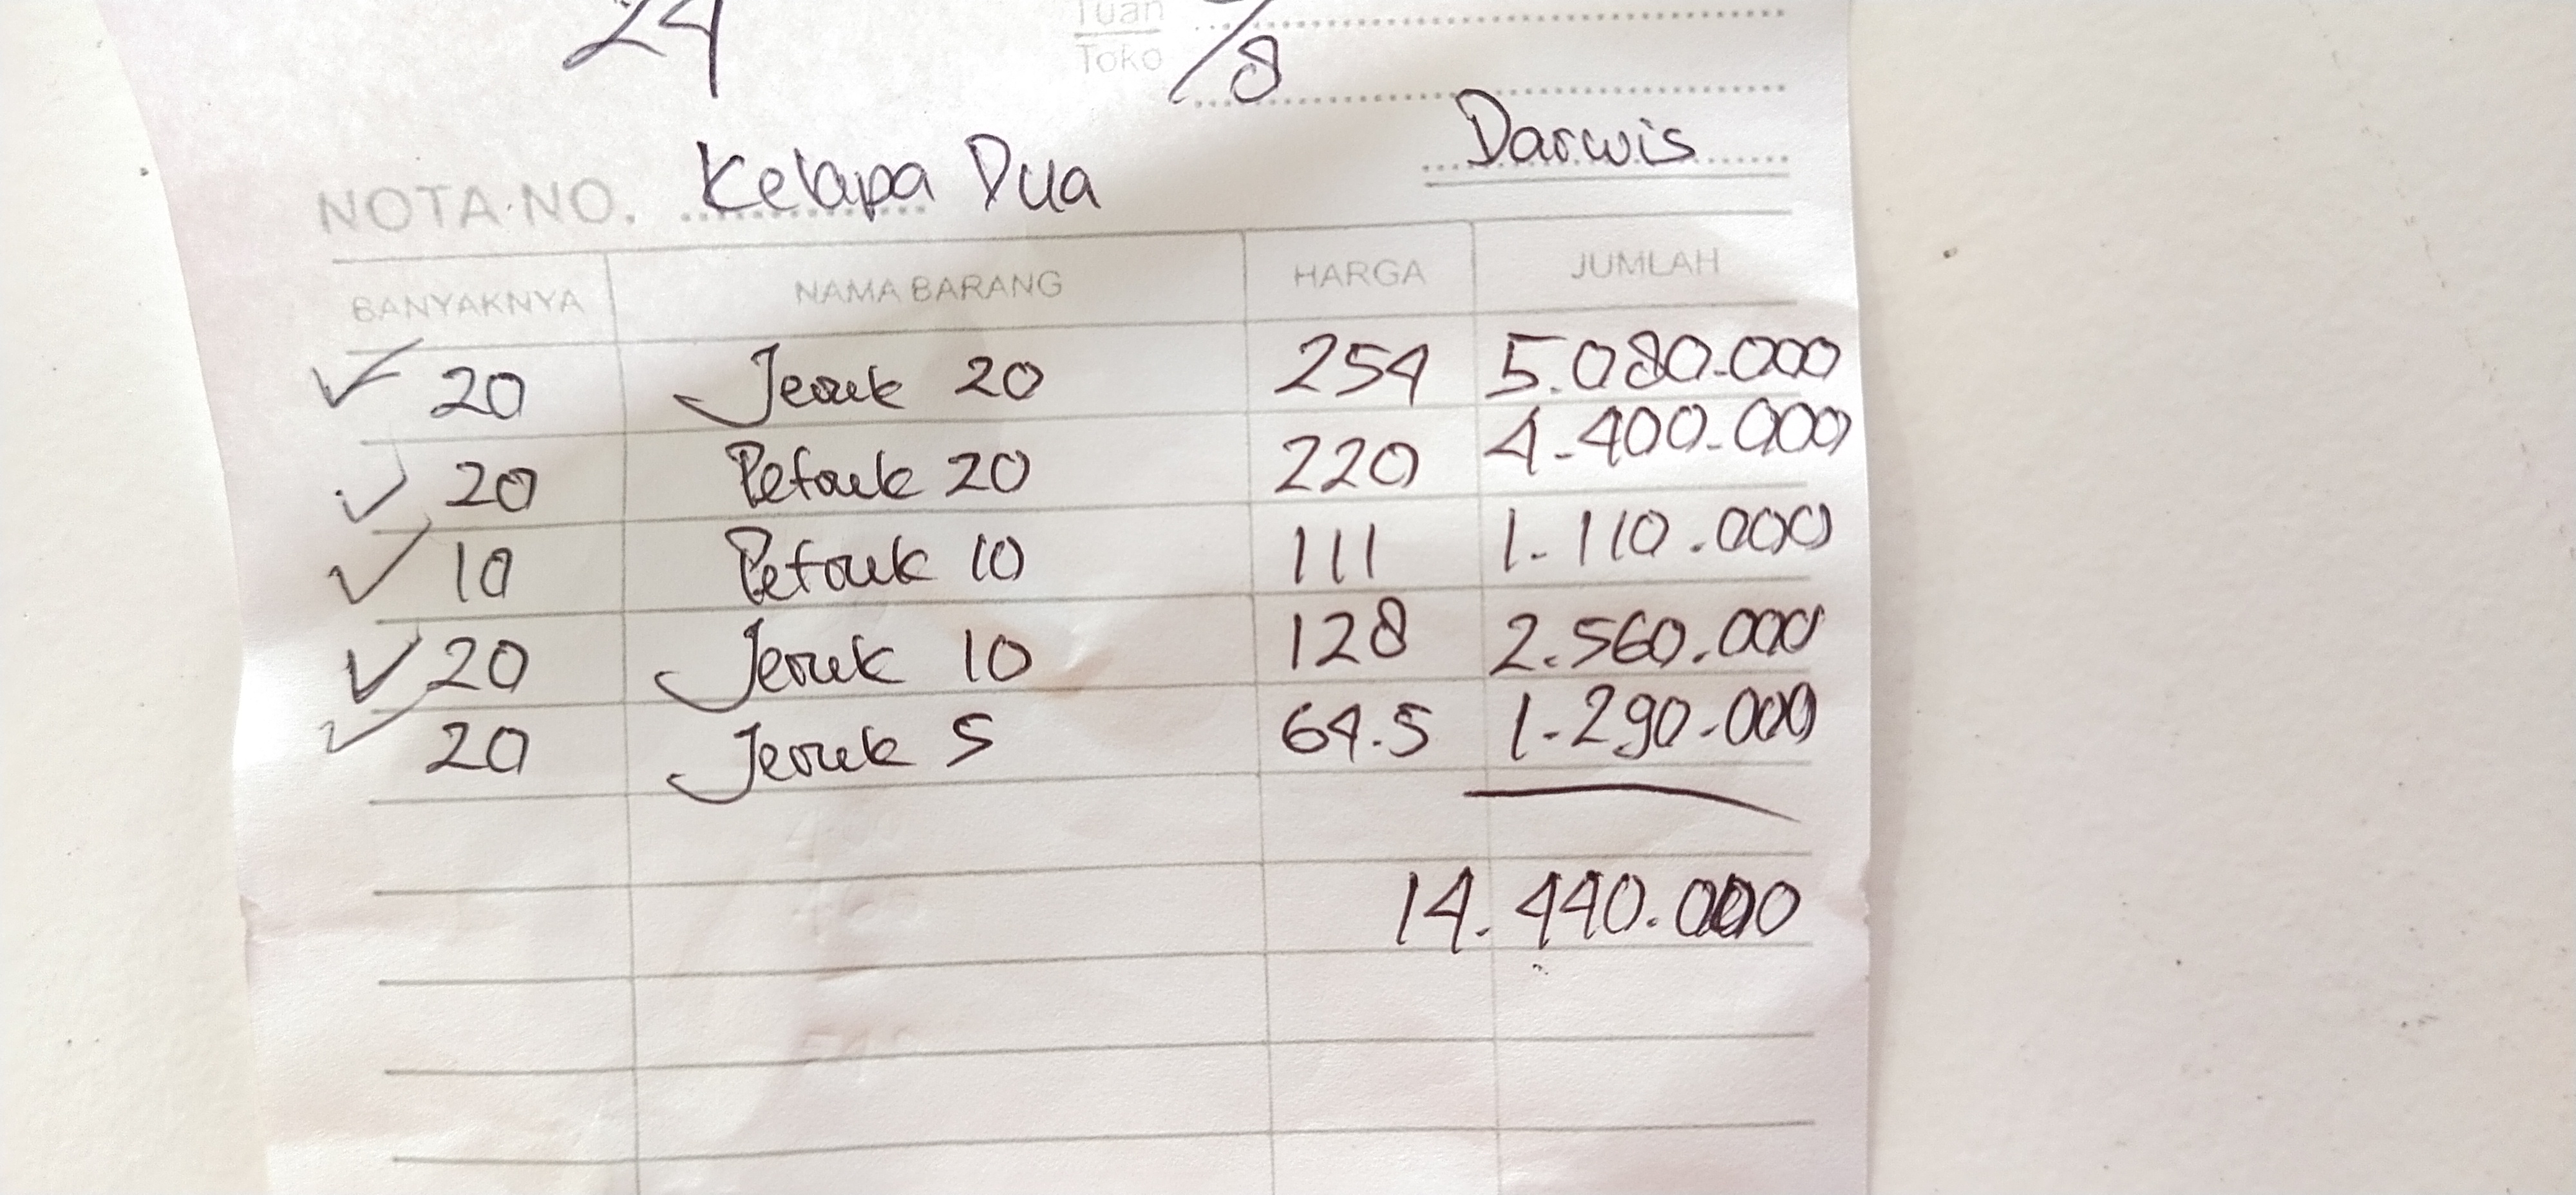 24
Tuan
Toko
/8
Darwis
NOTA NO. Kelapa Dua
BANYAKNYA NAMA BARANG HARGA JUMLAH
20 Jeruk 20 254 5.080.000
20 Petruk 20 220 4.400.000
10 Petruk 10 111 1.110.000
20 Jeruk 10 128 2.560.000
20 Jeruk 5 64.5 1.290.000
14.440.000